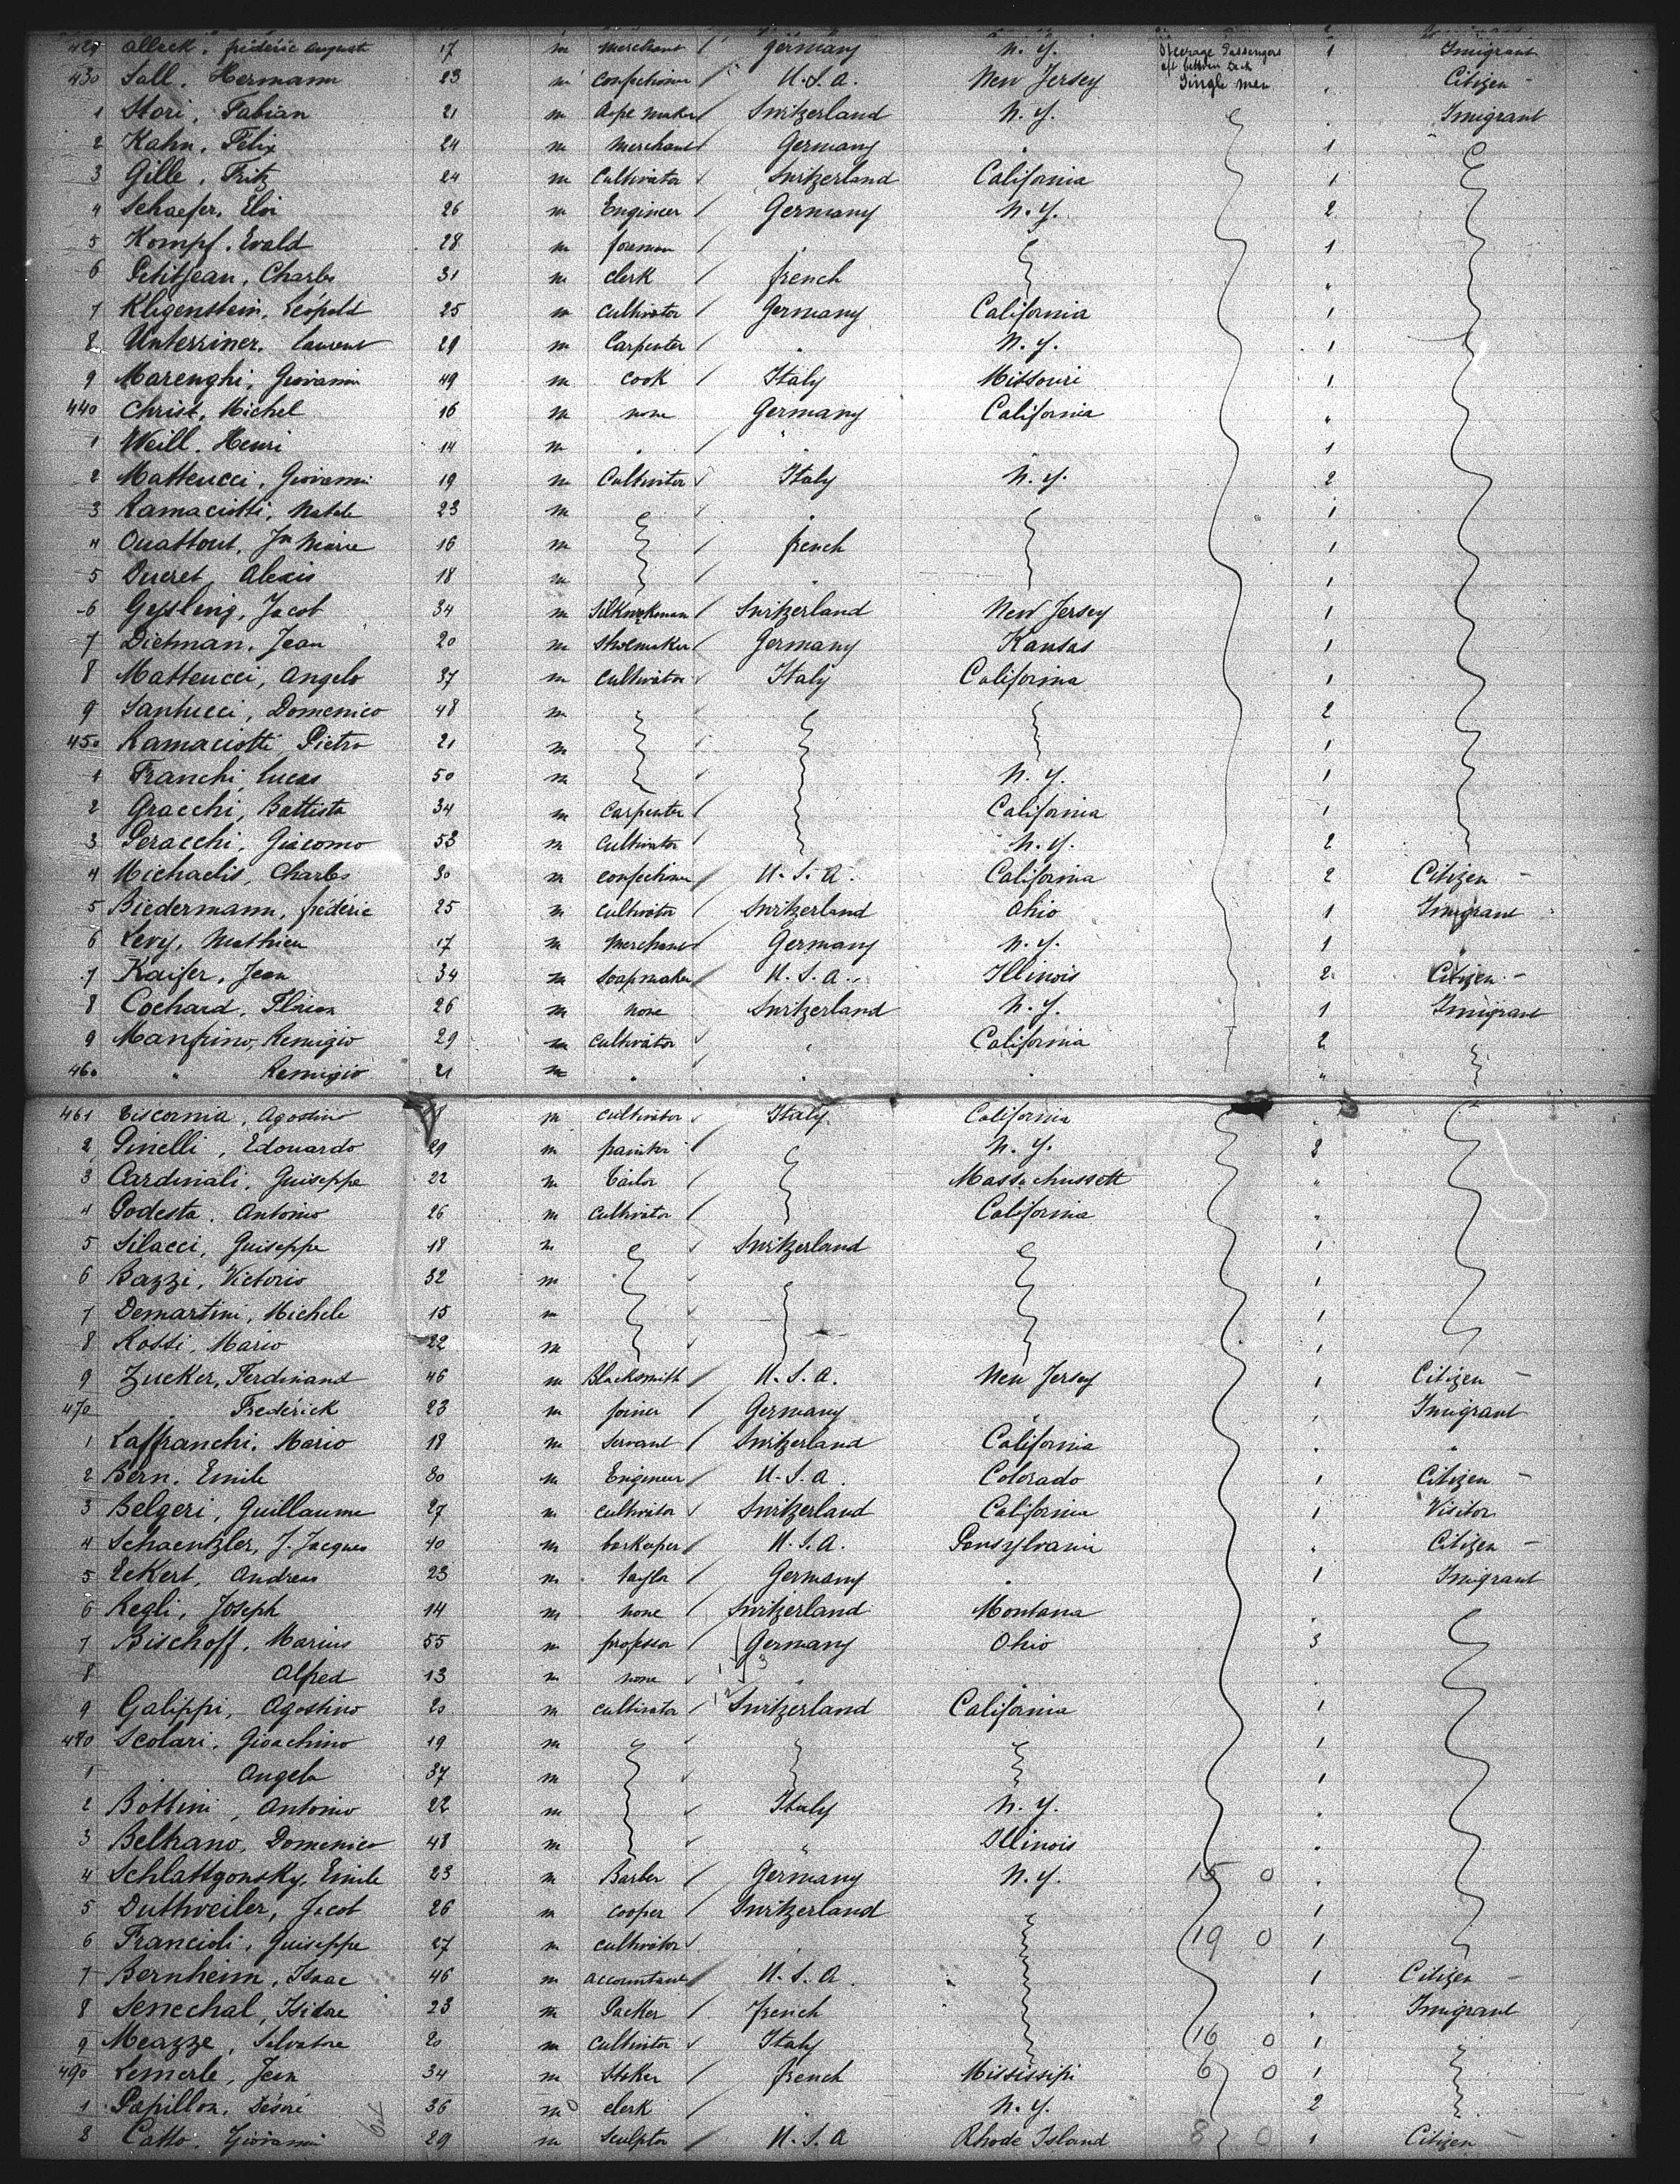 429 Alleck. frédéric August 17 m merchant / Germany N. Y. Steerage Passengers 1 Imigrant
aft between deck
430 Sall. Hermann 23 m confectioner / U.S.A. New Jersey Single men " Citizen -
1 Stori, Fabian 21 m Switzerland N. Y. " Imigrant
2 Kahn, Félix 24 m merchant / Germany " 1
3 Gille, Fritz 24 m Cultivator / Switzerland California 1
4 Schaefer, Eloi 26 m Engineer / Germany N. Y. 2
5 Kompf. Evald 28 m foreman / " 1
6 Petitjean, Charles 31 m clerk / french "
7 Kligenstein, Léopold 25 m cultivator / Germany California 1
8 Unterriner, Laurent 29 m Carpenter / " N. Y. 1
9 Marenghi, Giovanni 49 m cook / Italy Missouri 1
440 Christ, Michel 16 m none Germany California "
1 Weill. Henri 14 m " " " 1
2 Matteucci, Giovanni 19 m Cultivator / Italy N. Y. 2
3 Ramaciotti, Natale 23 m " 1
4 Ouattout, Jn Marie 16 m / french 1
5 Ducret, Alexis 18 m / " 1
6 Geisling, Jacob 34 m Silkworkman / Switzerland New Jersey 1
7 Dietman, Jean 20 m Shoemaker / Germany Kansas 1
8 Matteucci, Angelo 37 m cultivator / Italy California 1
9 Santucci, Domenico 48 m 2
450 Ramaciotti Pietro 21 m 1
1 Franchi, Lucas 50 m N. Y. 1
2 Gracchi, Battista 34 m Carpenter / California 1
3 Peracchi, Giacomo 53 m Cultivator N. Y. 2
4 Michaelis, Charles 30 m confectioner / U.S.A. California 2 Citizen -
5 Biedermann, frédéric 25 m cultivator / Switzerland Ohio 1 Imigrant
6 Levy, Mathieu 17 m merchant / Germany N. Y. 1 "
7 Kaiser, Jean 34 m soapmaker / U.S.A. Illinois 2 Citizen -
8 Cochard, Florian 26 m none Switzerland N. Y. 1 Imigrant
9 Manfrino, Remigio 29 m cultivator / " California 2
460 " Remigio 21 m " " " "
461 Tiscornia, Agostino m cultivator / Italy California "
2 Pinelli, Edouardo 29 m painter / N. Y. 2
3 Cardinali, Guiseppe 22 m Tailor / Massachussett "
4 Podesta. Antonio 26 m Cultivator / California "
5 Silacci, Guiseppe 18 m Switzerland 1
6 Bazzi, Victorio 32 m 1
7 Demartini, Michele 15 m 1
8 Rossi, Mario 22 m 1
9 Zucker, Ferdinand 46 m Blacksmith / U.S.A. New Jersey 1 Citizen -
470 " Frédérick 23 m joiner / Germany " 1 Imigrant
1 Laffranchi, Mario 18 m Servant / Switzerland California " "
2 Bern, Emile 30 m Engineer / U.S.A. Colorado 1 Citizen -
3 Belgeri, Guillaume 27 m cultivator / Switzerland California 1 Visitor
4 Schaentzler, J. Jacques 40 m barkeeper / U.S.A. Pensylvania " Citizen -
5 Eckert, Andreas 23 m taylor / Germany " 1 Imigrant
6 Regli, Joseph 14 m none / Switzerland Montana "
7 Bischoff, Marius 55 m professor / Germany Ohio 3
8 Alfred 13 m none " " "
9 Galippi, Agostino 20 m cultivator / Switzerland California 1
480 Scolari, Gioachino 19 m 1
1 " Angelo 37 m 1
2 Bottini, Antonio 22 m Italy N. Y. "
3 Beltrano, Domenico 48 m " Illinois "
4 Schlattgonsky, Emile 23 m Barber / Germany N. Y. 15 0 "
5 Duttweiler, Jacob 26 m cooper / Switzerland 1
6 Francioli, Guiseppe 27 m cultivator / " 19 0 1
7 Bernheim, Isaac 46 m accountant / U.S.A. 1 Citizen -
8 Senechal, Isidore 23 m Packer / french " Imigrant
9 Meazze, Salvatore 20 m cultivator / Italy 16 0 1
490 Lemerle, Jean 34 m Stoker / french Mississipi 6 0 1
1 Papillon, Désiré 36 m clerk / " N. Y. 2
2 Catto. Giovanni 29 m Sculptor / U.S.A Rhode Island 8 0 1 Citizen -